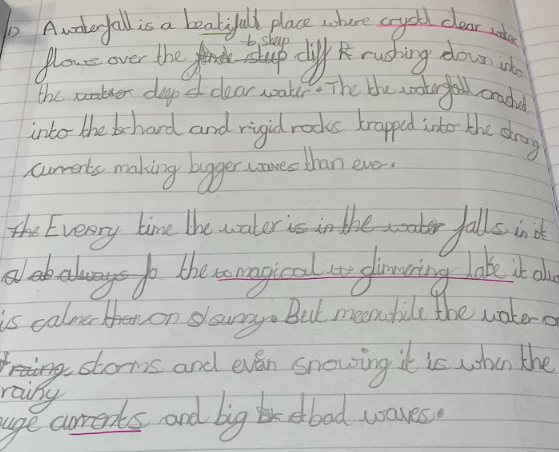 1) A waterfall is a beatifull place where crystl clear water
flows over the steep steep cliff rushing down into
the water deep & clear water. The the waterfall crached
into the hard and rigid rocks trapped into the strong
currents making bigger waves than ever.
the Every time the water is in the water falls in it
always to the magical glimmering lake it
is calmer than on sunny. But meanwhile the water
raing storms and even snowing it is when the
rainy
uge currents and big bad waves.